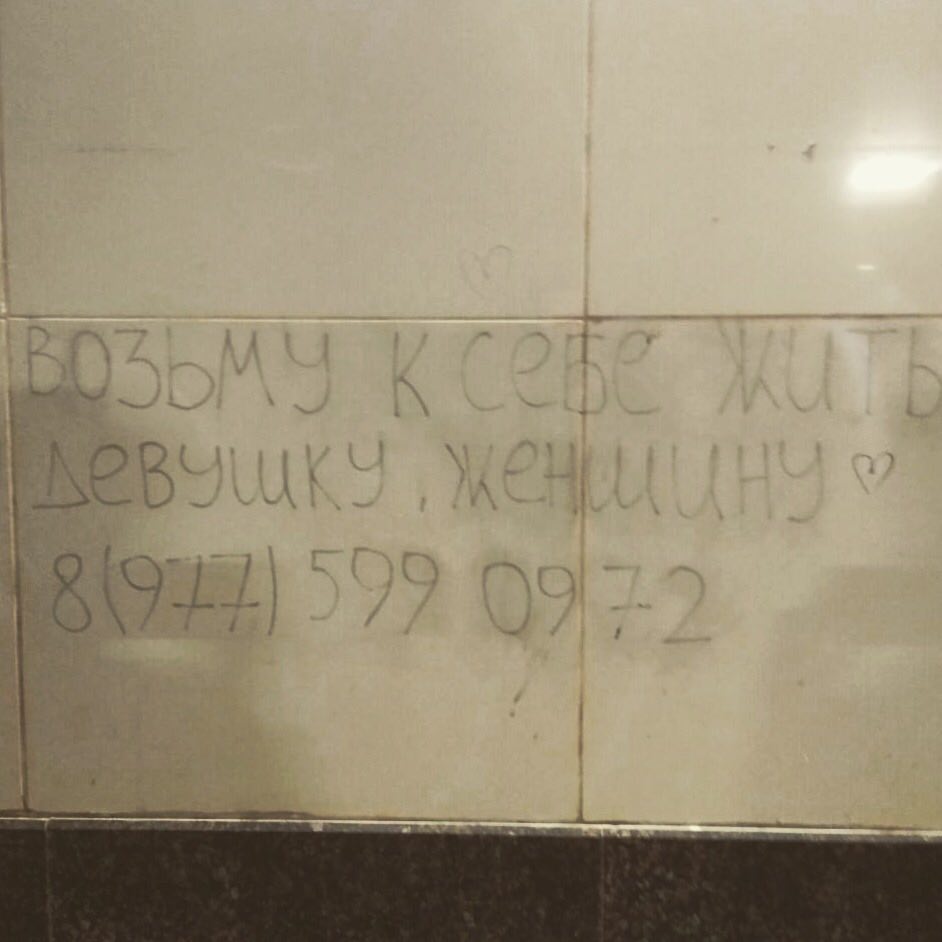 ВОЗЬМУ К СЕБЕ ЖИТЬ
ДЕВУШКУ, ЖЕНЩИНУ
8(977) 599 0972